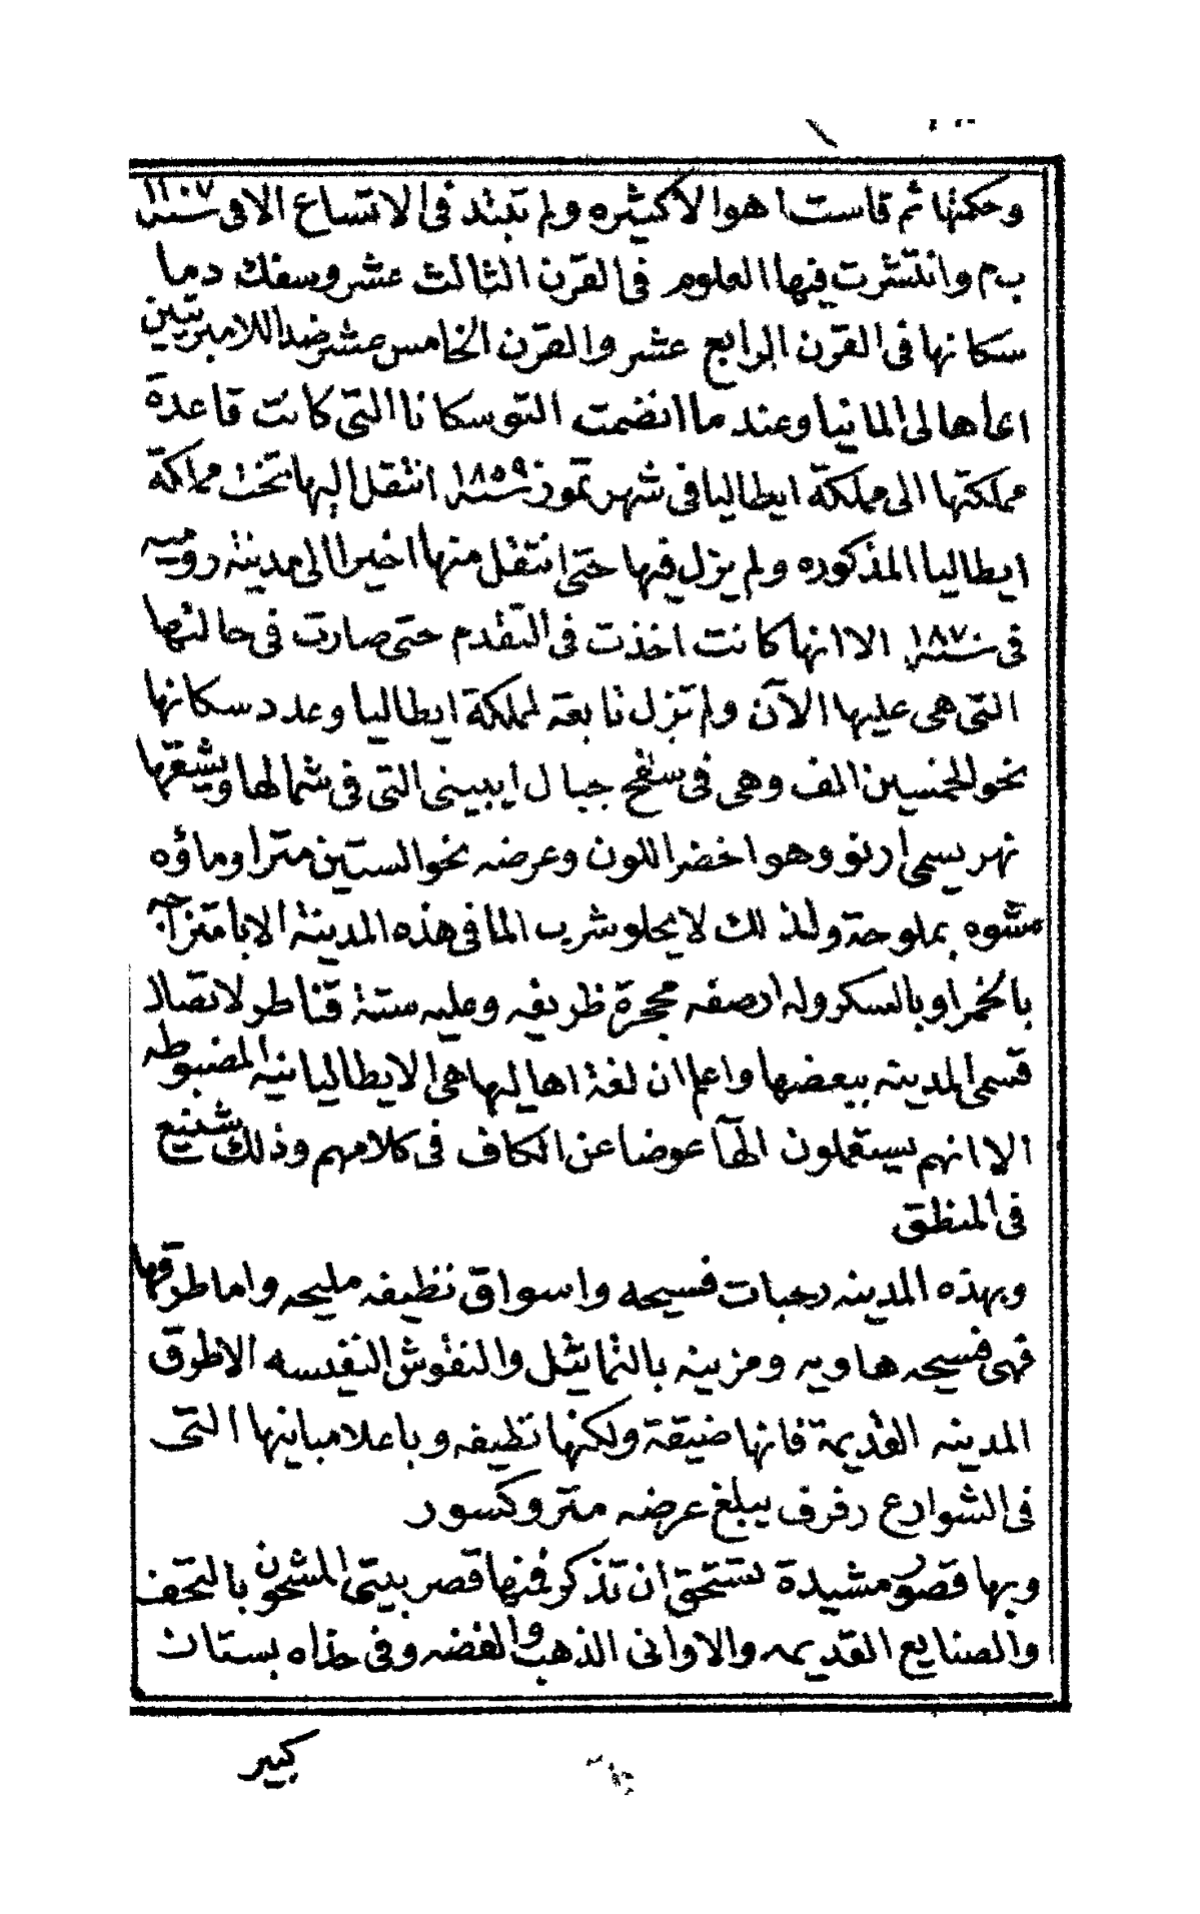 وحكمتها ثم قاست اهوالا كثيره ولم تبتد فى الاتساع الا فى سنة ١١٠٧
ب م وانتشرت فيها العلوم فى القرن الثالث عشر وسفك دما
سكانها فى القرن الرابع عشر والقرن الخامس عشر ضد اللامبرتيين
اعاها لى المانيا وعند ما انضمت التوسكانا التى كانت قاعدة
مملكتها الى مملكة ايطاليا فى شهر تموز سنة ١٨٥٩ انتقل اليها تخت مملكة
ايطاليا المذكوره ولم يزل فيها حتى انتقل منها اخيرا الى مدينة روميه
فى سنة ١٨٧٠ الا انها كانت اخذت فى التقدم حتى صارت فى حالتها
التى هى عليها الآن ولم تزل تابعة لمملكة ايطاليا وعدد سكانها
نحو الخمسين الف وهى فى سفح جبال ايبينى التى فى شمالها ويشقها
نهر يسمى ارنو وهو اخضر اللون وعرضه نحو الستين مترا وماؤه
مشوه بملوحة ولذلك لا يحلو شرب الما فى هذه المدينة الا بامتزاجه
بالخمر او بالسكر وله ارصفه محجرة ظريفه وعليه ستة قناطر لاتصال
قسمى المدينه ببعضها واعلم ان لغة اهاليها هى الايطاليانيه المضبوطه
الا انهم يستعملون الهآ عوضا عن الكاف فى كلامهم وذلك شنيع
فى المنطق
وبهذه المدينه رحبات فسيحه واسواق نظيفه مليحه واما طرقها
فهى فسيحه هاويه ومزينه بالتماثيل والنقوش النفيسه الا طرق
المدينه القديمة فانها ضيقة ولكنها نظيفه وباعلا مبانيها التى
فى الشوارع رفرف يبلغ عرضه متر وكسور
وبها قصور مشيدة تستحق ان تذكر فمنها قصر بيتى المشحون بالتحف
والصنايع القديمه والاوانى الذهب والفضه وفى حذاه بستان
كبير